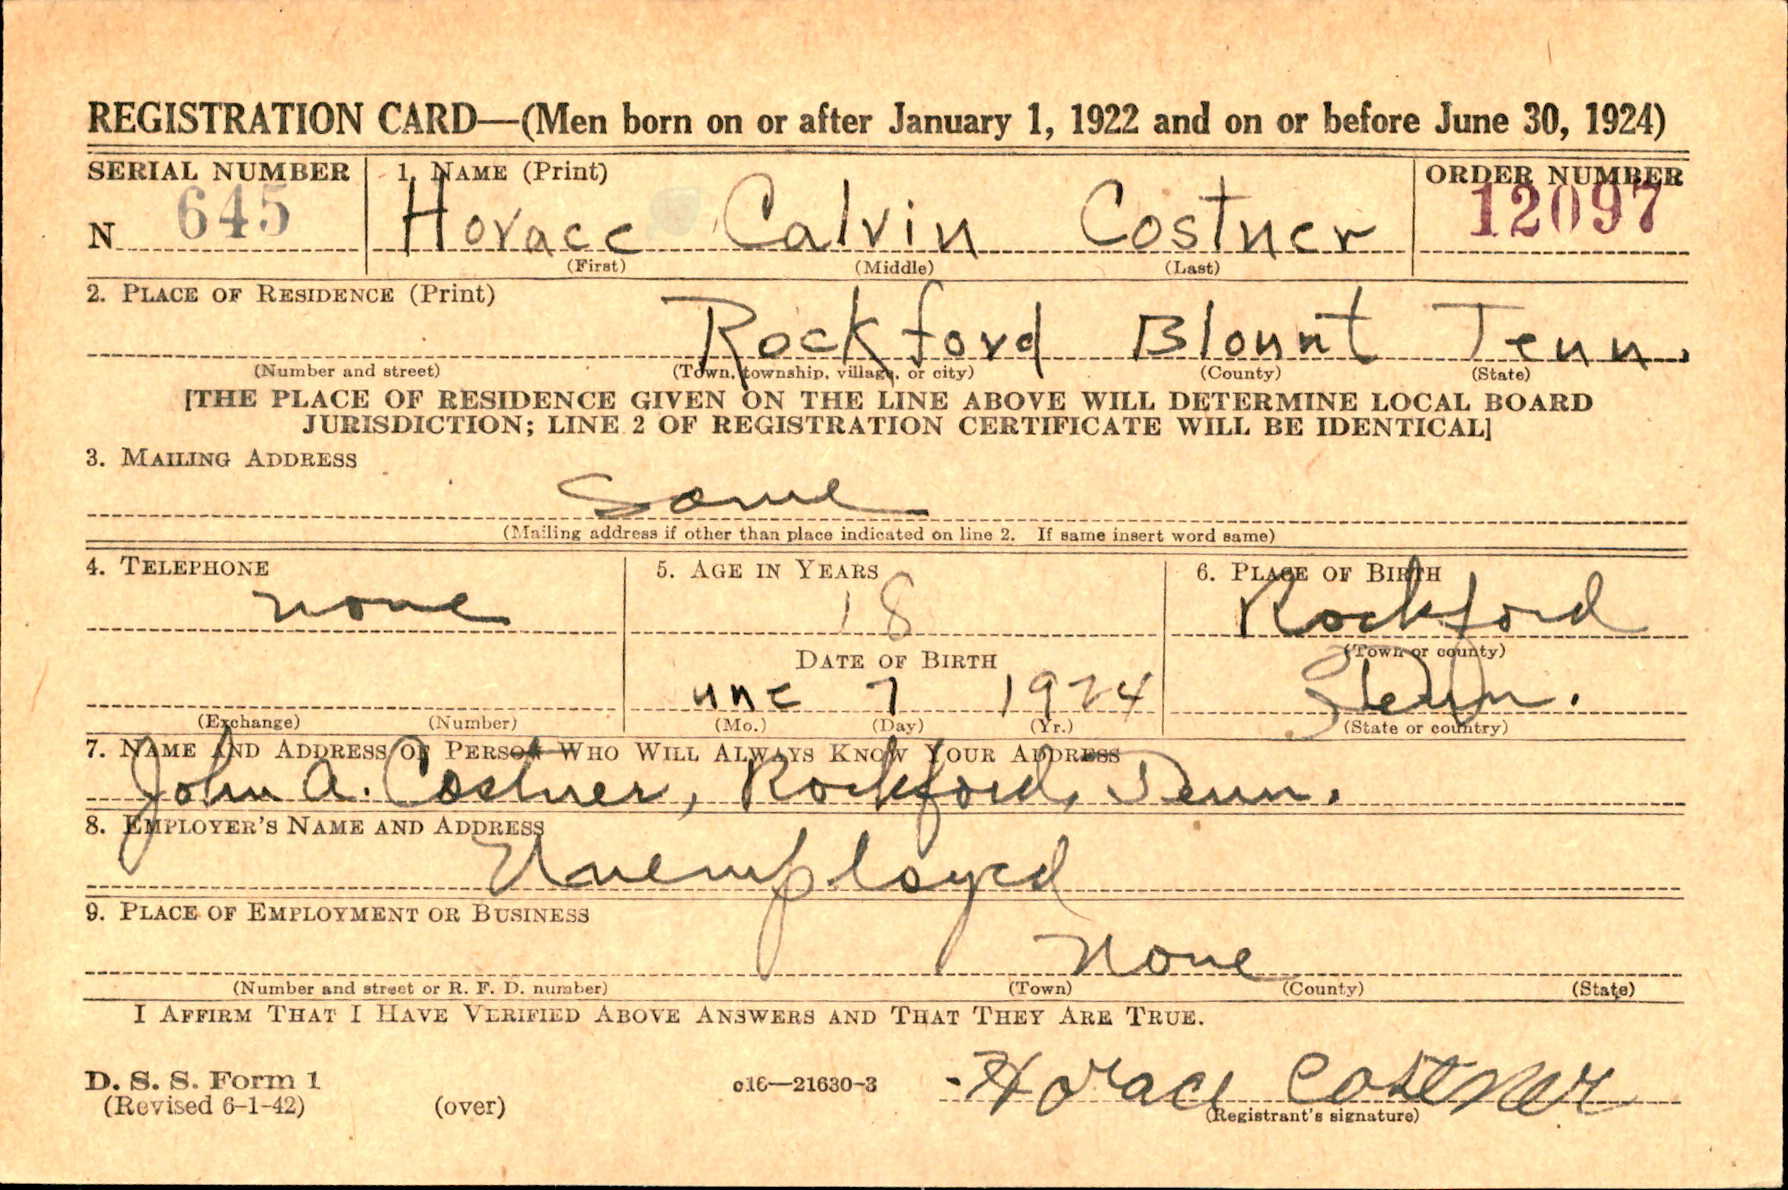 REGISTRATION CARD—(Men born on or after January 1, 1922 and on or before June 30, 1924)
SERIAL NUMBER 1. NAME (Print) ORDER NUMBER
N 645 Horace Calvin Costner 12097
(First) (Middle) (Last)
2. PLACE OF RESIDENCE (Print)
Rockford Blount Tenn.
(Number and street) (Town, township, village, or city) (County) (State)
[THE PLACE OF RESIDENCE GIVEN ON THE LINE ABOVE WILL DETERMINE LOCAL BOARD
JURISDICTION; LINE 2 OF REGISTRATION CERTIFICATE WILL BE IDENTICAL]
3. MAILING ADDRESS
Same
(Mailing address if other than place indicated on line 2. If same insert word same)
4. TELEPHONE 5. AGE IN YEARS 6. PLACE OF BIRTH
none 18 Rockford
DATE OF BIRTH (Town or county)
une 7 1924 Tenn.
(Exchange) (Number) (Mo.) (Day) (Yr.) (State or country)
7. NAME AND ADDRESS OF PERSON WHO WILL ALWAYS KNOW YOUR ADDRESS
John A. Costner, Rockford, Tenn.
8. EMPLOYER'S NAME AND ADDRESS
Unemployed
9. PLACE OF EMPLOYMENT OR BUSINESS
None
(Number and street or R. F. D. number) (Town) (County) (State)
I AFFIRM THAT I HAVE VERIFIED ABOVE ANSWERS AND THAT THEY ARE TRUE.
D. S. S. Form 1
(Revised 6-1-42) (over) c16—21630-3 Horace Costner
(Registrant's signature)